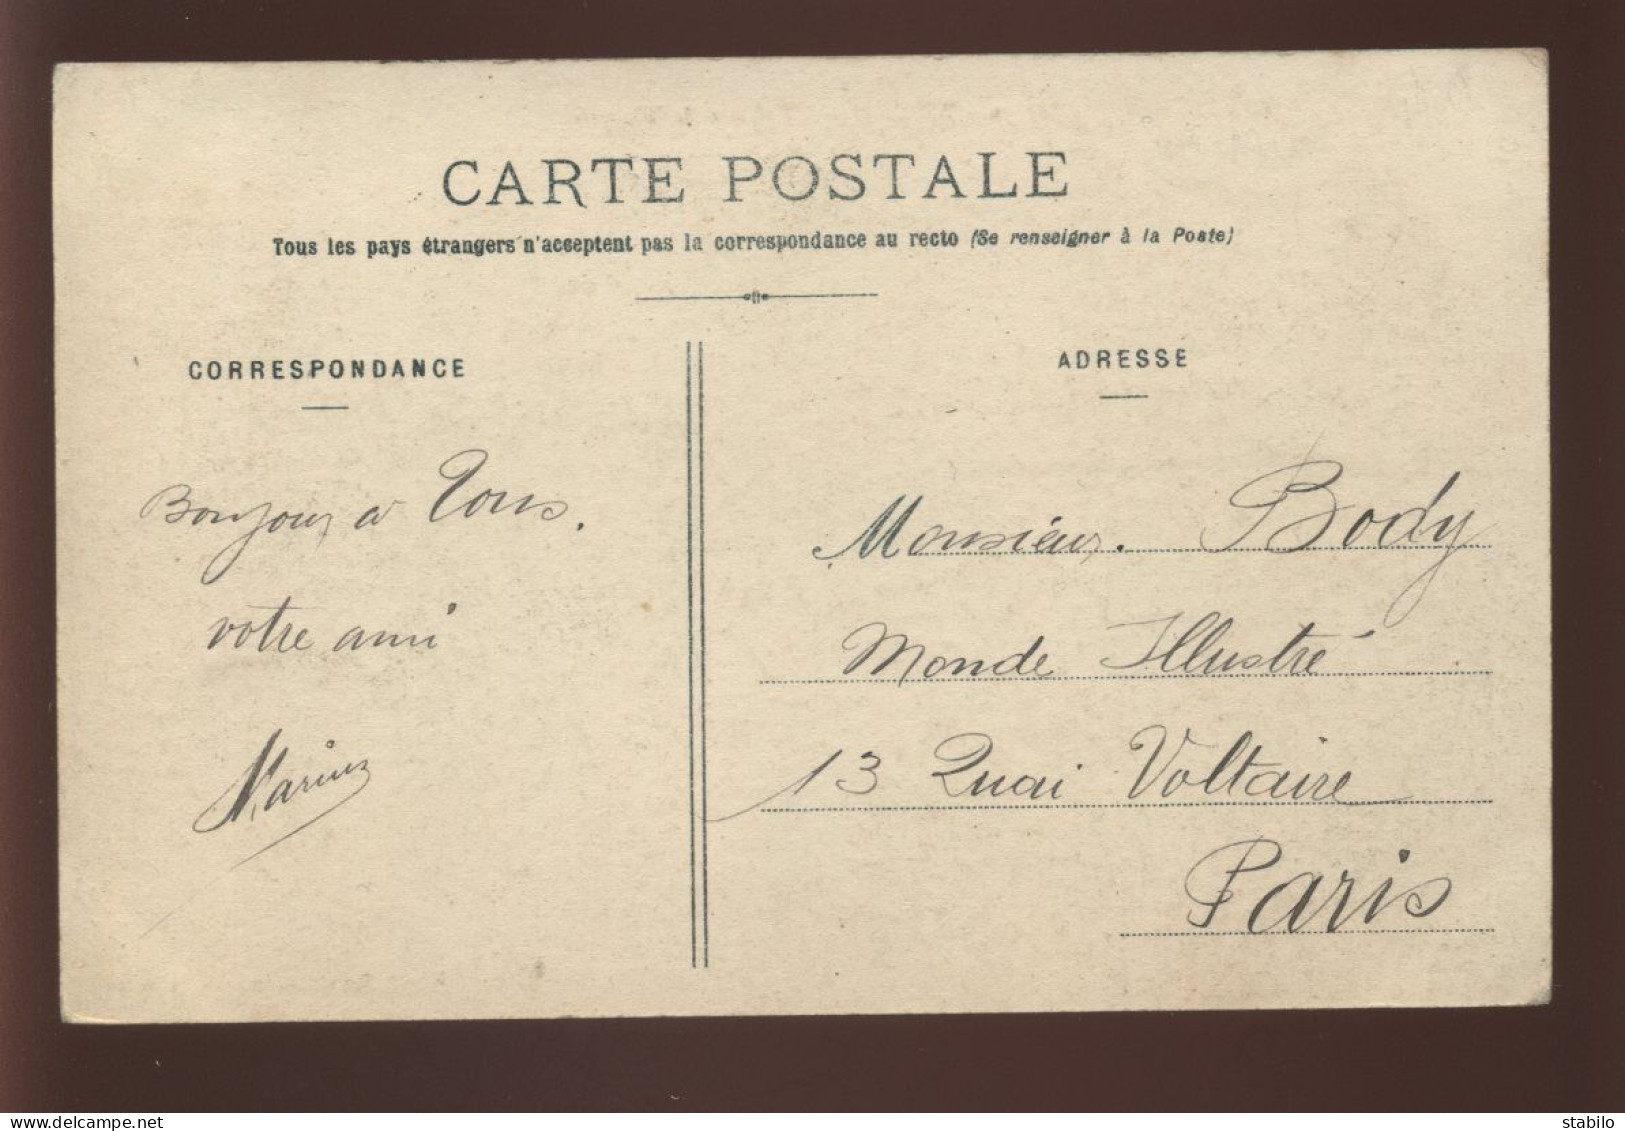 CARTE POSTALE
Tous les pays étrangers n'acceptent pas la correspondance au recto (Se renseigner à la Poste)
CORRESPONDANCE
Bonjour a Tous.
votre ami
ADRESSE
Monsieur. Body
Monde Illustré
13 Quai Voltaire
Paris
stabilo
delcampe.net